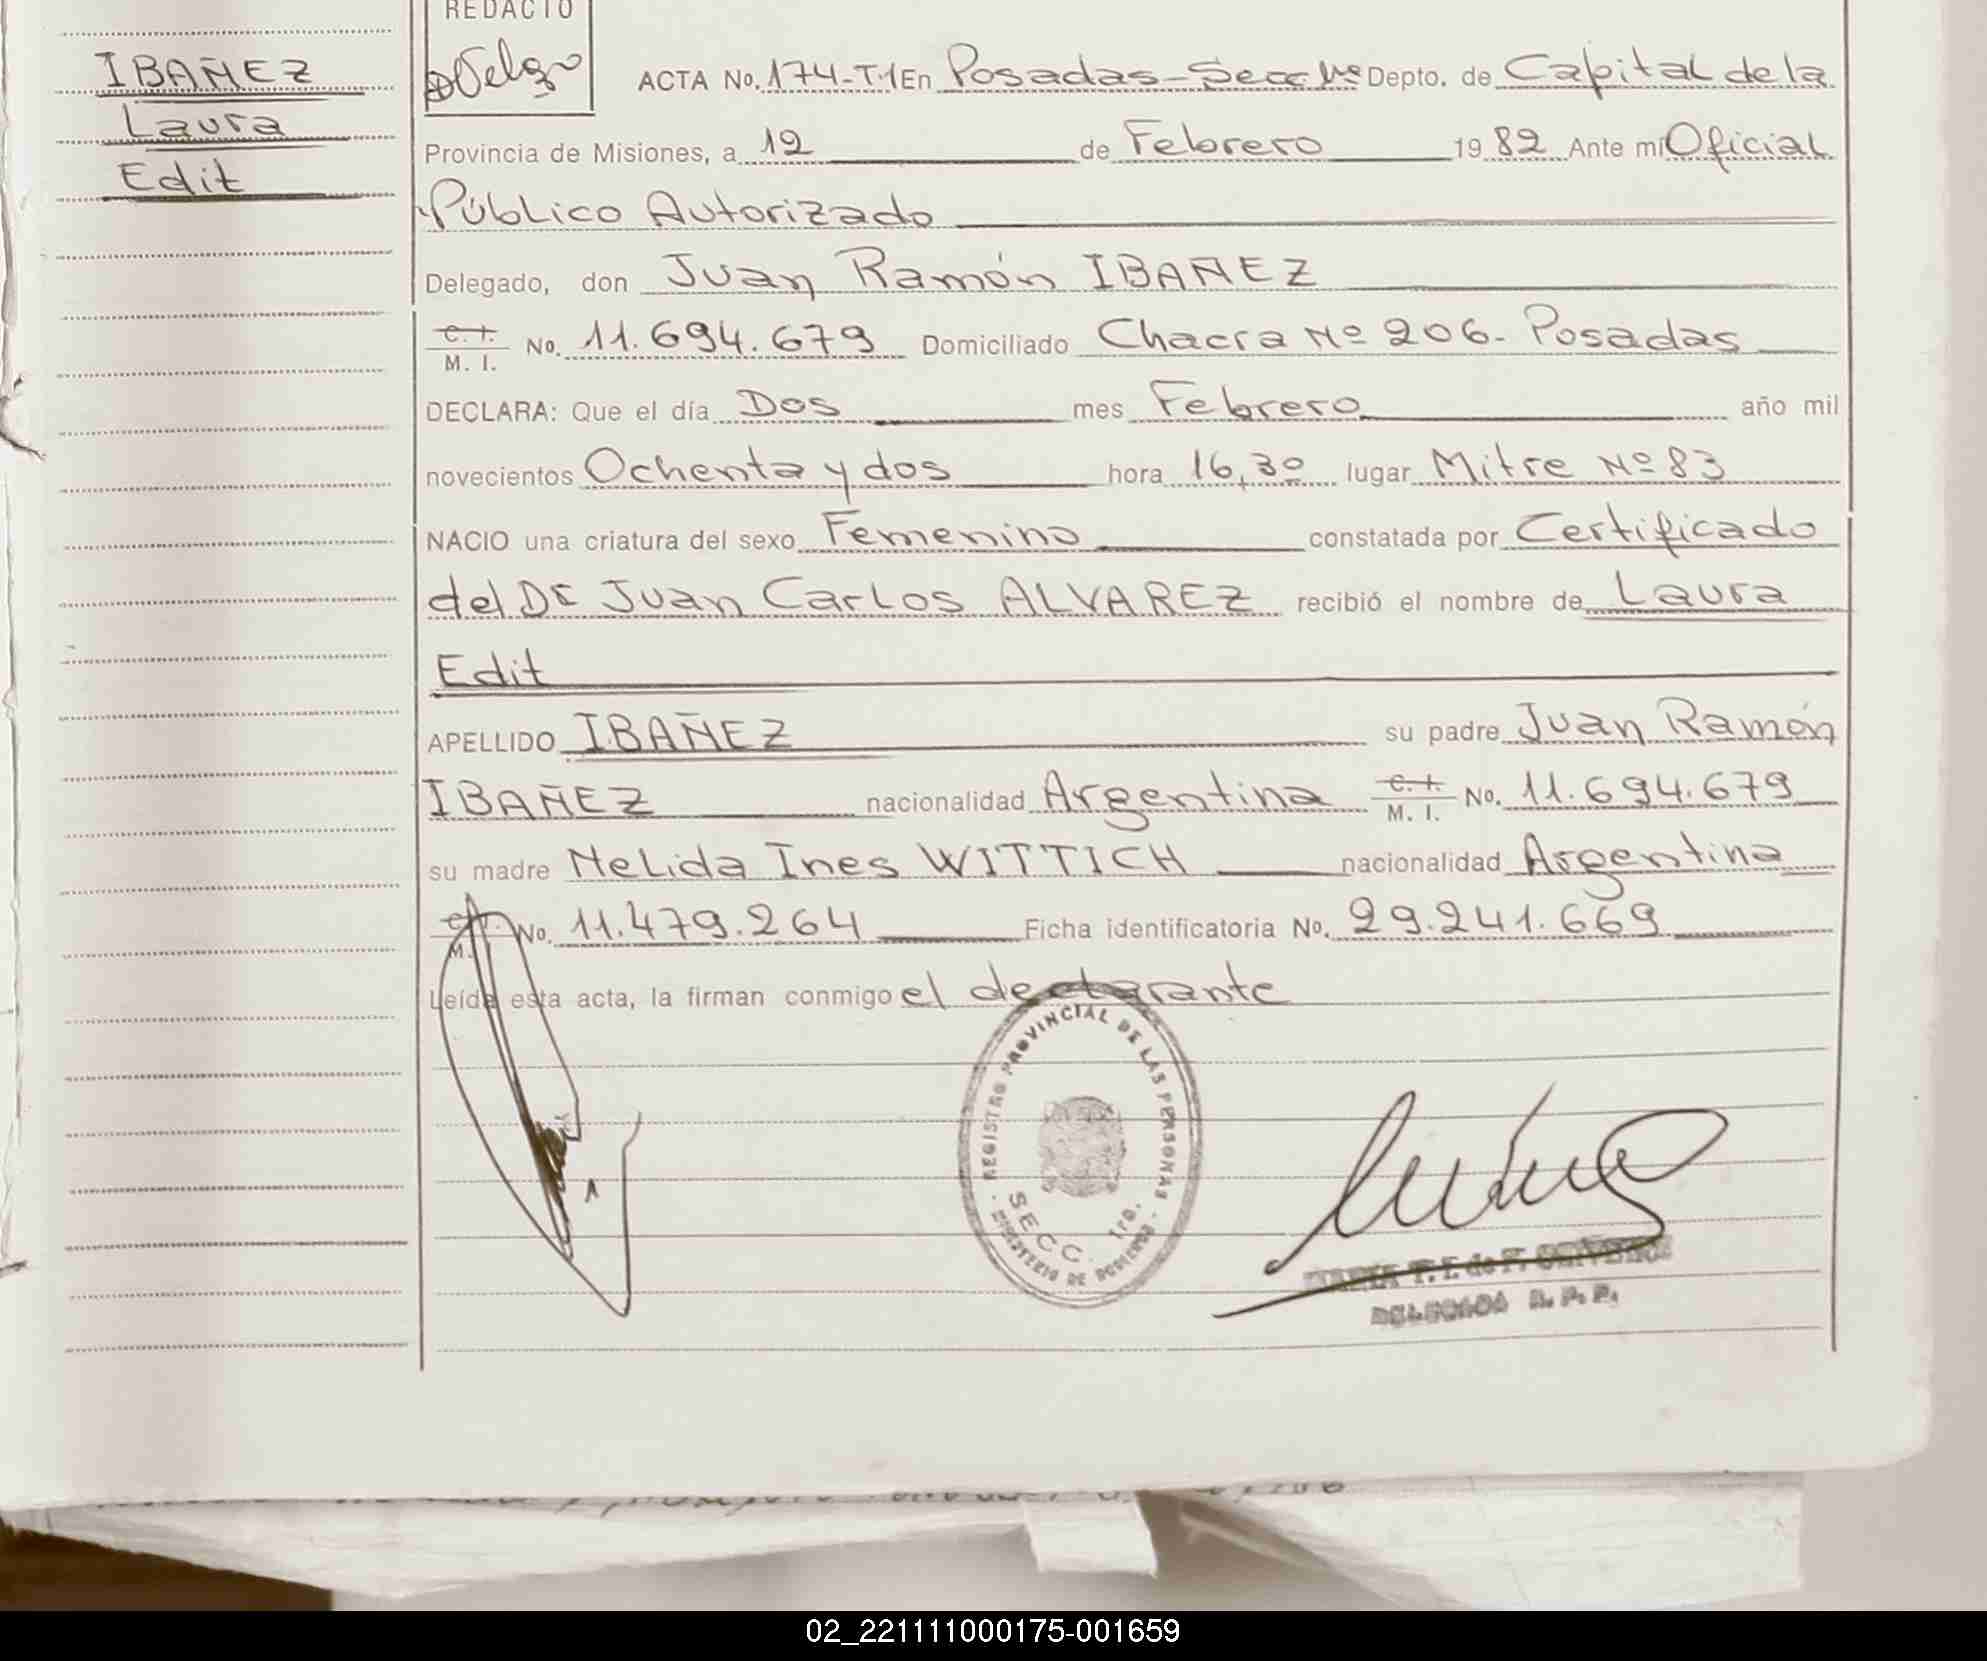 REDACTO
IBAÑEZ
Laura
Edit
ACTA No. 174-T-1 En Posadas-Secc 1ra Depto. de Capital de la
Provincia de Misiones, a 12 de Febrero 19 82 Ante mi Oficial
Público Autorizado
Delegado, don Juan Ramón IBAÑEZ
C. I. M. I. No. 11.694.679 Domiciliado Chacra Nº 206- Posadas
DECLARA: Que el día Dos mes Febrero año mil
novecientos Ochenta y dos hora 16,30 lugar Mitre Nº 83
NACIO una criatura del sexo Femenino constatada por Certificado
del Dr Juan Carlos ALVAREZ recibió el nombre de Laura
Edit
APELLIDO IBAÑEZ su padre Juan Ramón
IBAÑEZ nacionalidad Argentina C. I. M. I. No. 11.694.679
su madre Nelida Ines WITTICH nacionalidad Argentina
No. 11.479.264 Ficha identificatoria No. 29.241.669
Leída esta acta, la firman conmigo el declarante
REGISTRO PROVINCIAL DE LAS PERSONAS
SECC. 1ra.
MINISTERIO DE GOBIERNO
DELEGADA R. P. P.
02_221111000175-001659